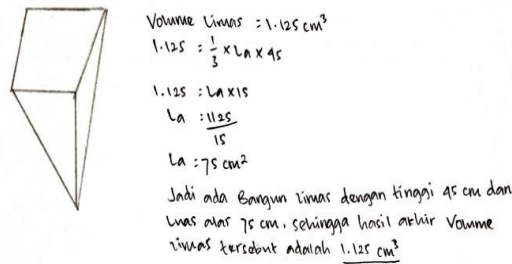 Volume Limas = 1.125 cm³
1.125 = 1/3 × La × 45
1.125 = La × 15
La = 1125/15
La = 75 cm²
Jadi ada Bangun limas dengan tinggi 45 cm dan
luas alas 75 cm, sehingga hasil akhir Volume
limas tersebut adalah 1.125 cm³